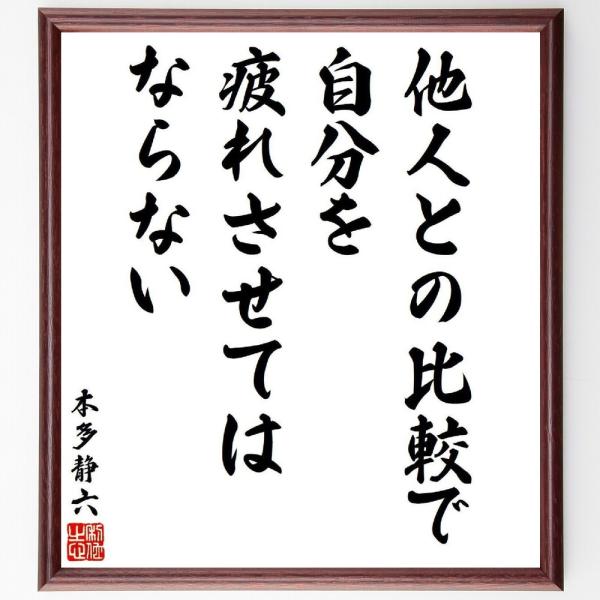 他人との比較で
自分を
疲れさせては
ならない
本多静六